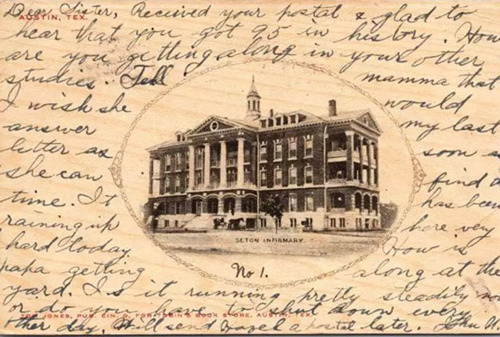 Dear Sister, Received your postal & glad to
AUSTIN, TEX.
hear that you got 95 in history. How
are you getting along in your other
studies. Tell mamma that
I wish she would
answer my last
letter as soon as
she can find
time. It has been
raining up here very
hard today. How is
papa getting along at the
yard. Is it running pretty steadily now
or do you have to shut down every
ther day. Will send a postal later. John
SETON INFIRMARY.
No 1.
JONES, PUB. CIN. O., FOR TOBIN'S BOOK STORE, AUSTIN, TEX.